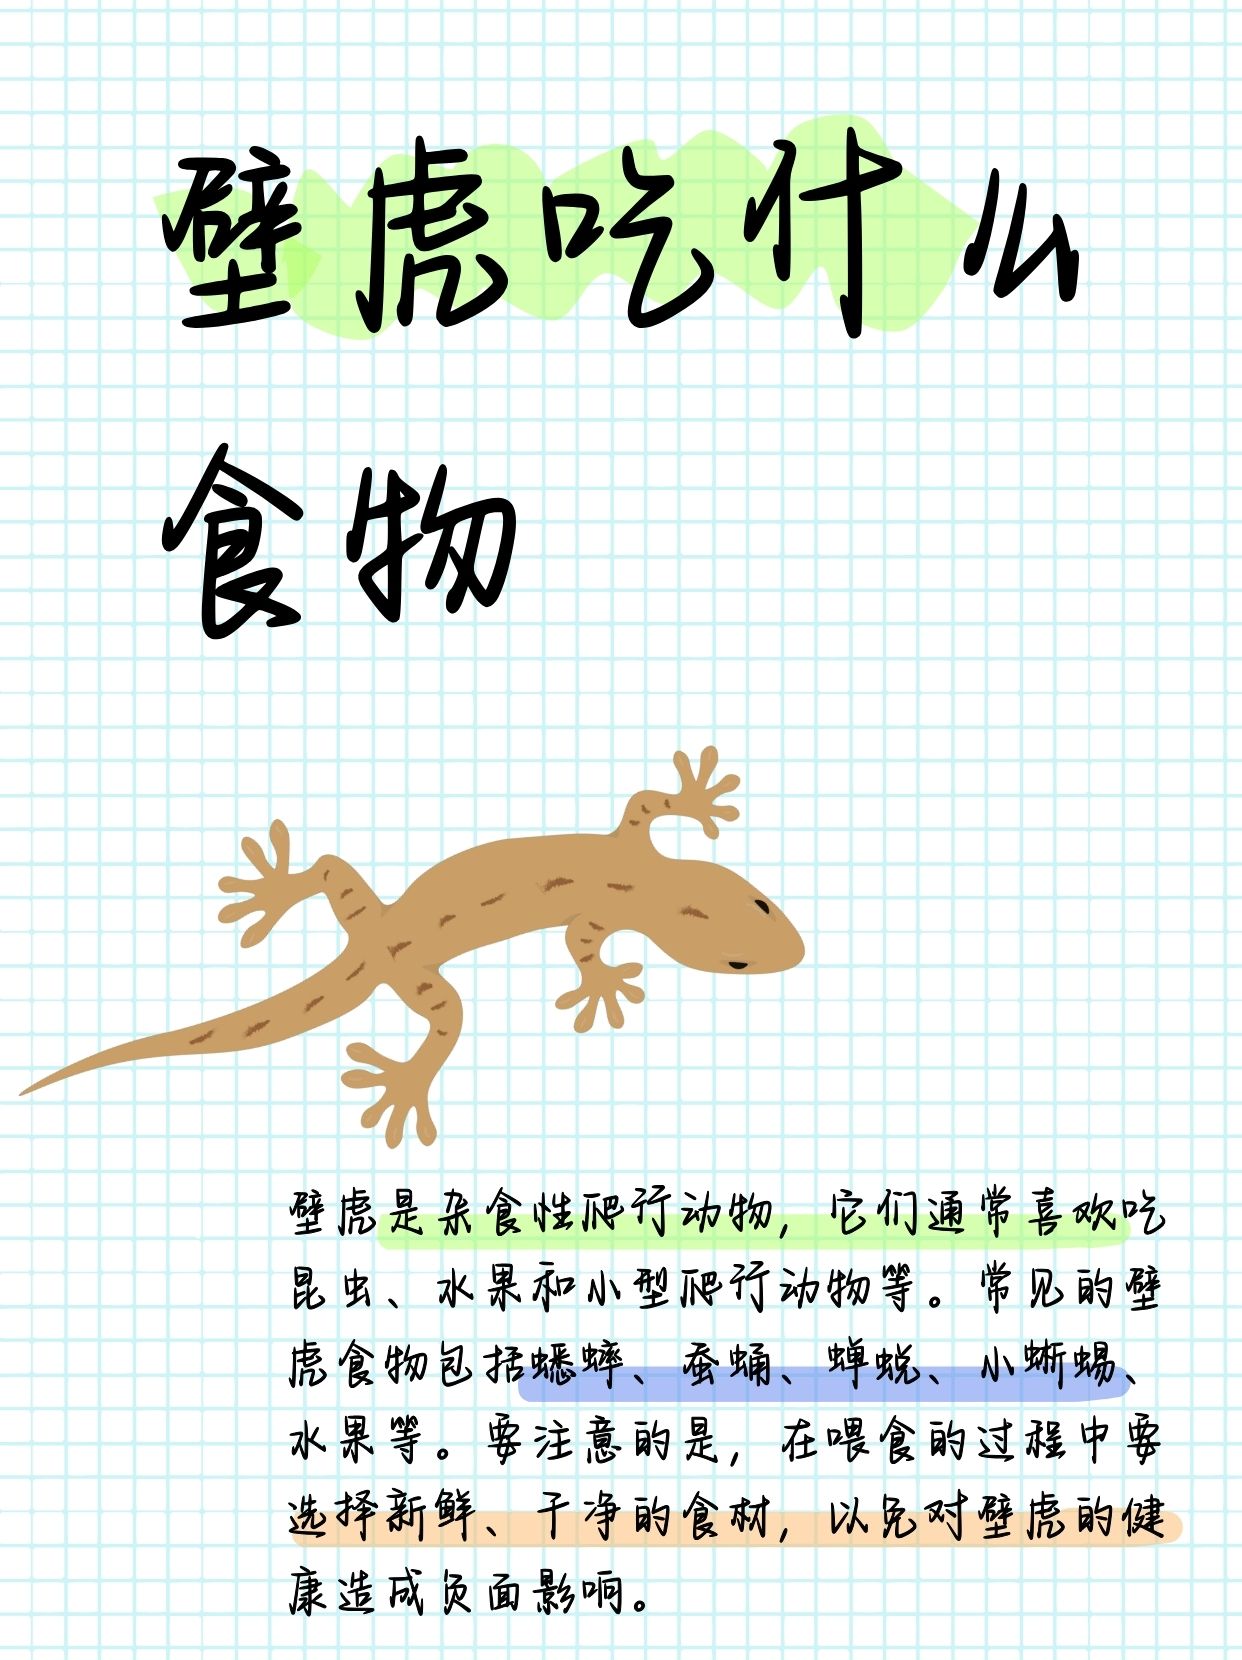 壁虎吃什么
食物
壁虎是杂食性爬行动物，它们通常喜欢吃
昆虫、水果和小型爬行动物等。常见的壁
虎食物包括蟋蟀、蚕蛹、蝉蜕、小蜥蜴、
水果等。要注意的是，在喂食的过程中要
选择新鲜、干净的食材，以免对壁虎的健
康造成负面影响。